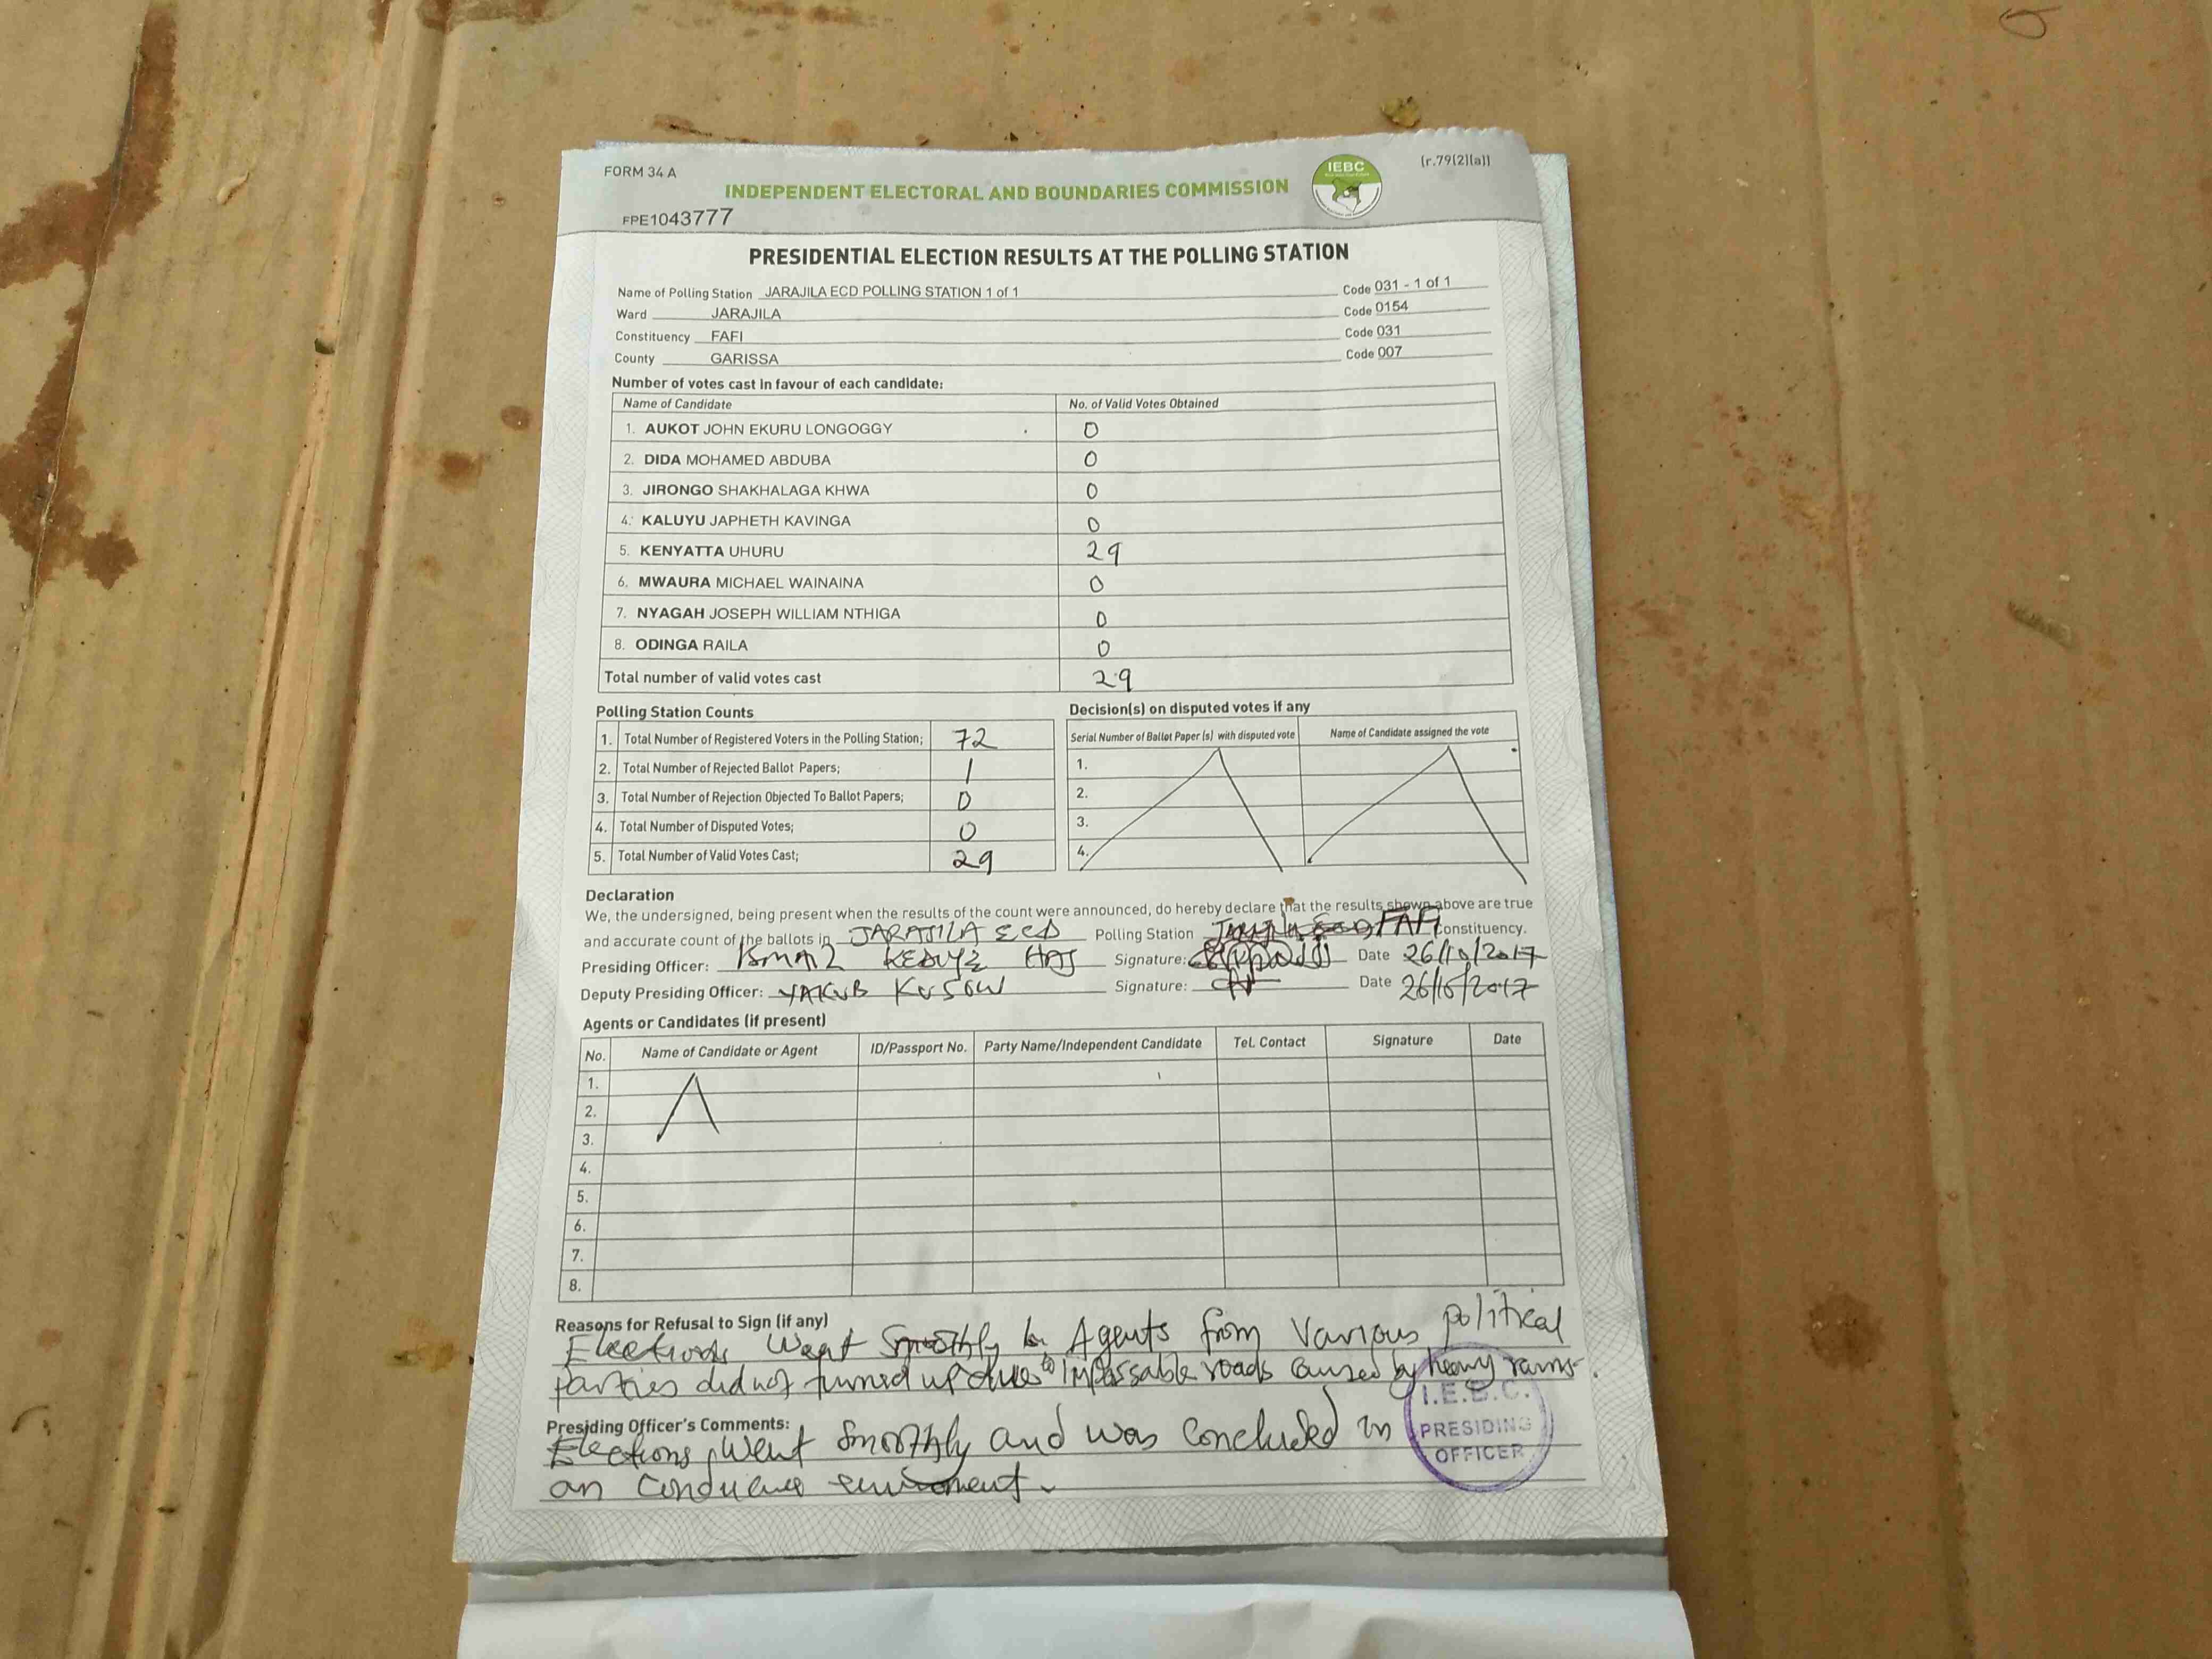 FORM 34 A
IEBC
(r.79(2)(a))
INDEPENDENT ELECTORAL AND BOUNDARIES COMMISSION
FPE1043777
PRESIDENTIAL ELECTION RESULTS AT THE POLLING STATION
Name of Polling Station JARAJILA ECD POLLING STATION 1 of 1 Code 031 - 1 of 1
Ward JARAJILA Code 0154
Constituency FAFI Code 031
County GARISSA Code 007
Number of votes cast in favour of each candidate:
Name of Candidate No. of Valid Votes Obtained
1. AUKOT JOHN EKURU LONGOGGY 0
2. DIDA MOHAMED ABDUBA 0
3. JIRONGO SHAKHALAGA KHWA 0
4. KALUYU JAPHETH KAVINGA 0
5. KENYATTA UHURU 29
6. MWAURA MICHAEL WAINAINA 0
7. NYAGAH JOSEPH WILLIAM NTHIGA 0
8. ODINGA RAILA 0
Total number of valid votes cast 29
Polling Station Counts
1. Total Number of Registered Voters in the Polling Station; 72
2. Total Number of Rejected Ballot Papers; 1
3. Total Number of Rejection Objected To Ballot Papers; 0
4. Total Number of Disputed Votes; 0
5. Total Number of Valid Votes Cast; 29
Decision(s) on disputed votes if any
Serial Number of Ballot Paper (s) with disputed vote Name of Candidate assigned the vote
1.
2.
3.
4.
Declaration
We, the undersigned, being present when the results of the count were announced, do hereby declare that the results shown above are true
and accurate count of the ballots in JARAJILA ECD Polling Station FAFI Constituency.
Presiding Officer: Signature: Date 26/10/2017
Deputy Presiding Officer: YAKUB KUSOW Signature: Date 26/10/2017
Agents or Candidates (if present)
No. Name of Candidate or Agent ID/Passport No. Party Name/Independent Candidate Tel. Contact Signature Date
1.
2.
3.
4.
5.
6.
7.
8.
Reasons for Refusal to Sign (if any)
Elections Went Smoothly Agents from Various political
parties did not turned up due to impassable roads caused by heavy rains.
Presiding Officer's Comments:
Elections Went Smoothly and was Concluded in
an Conducive enviroment.
I.E.B.C.
PRESIDING
OFFICER